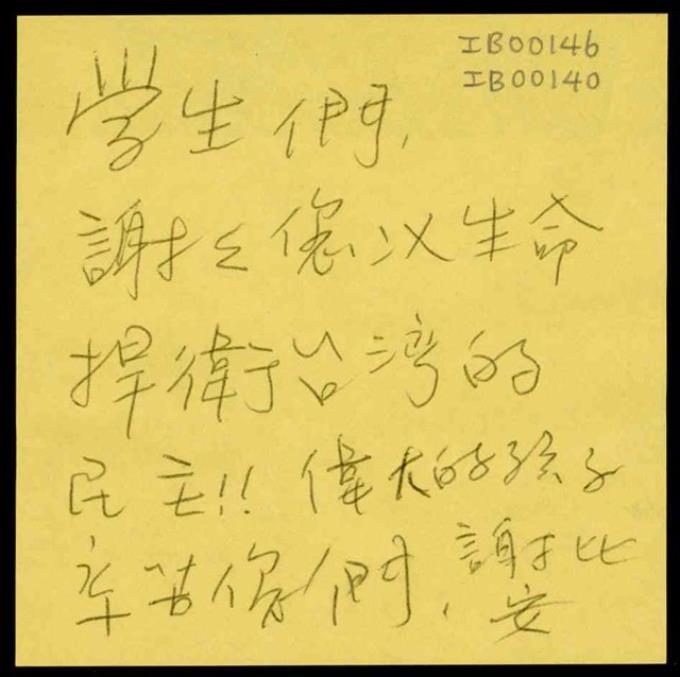 IB00146
IB00140
學生們,
謝々您以生命
捍衛台湾的
民主!! 偉大的孩子
辛苦你們, 謝比
安